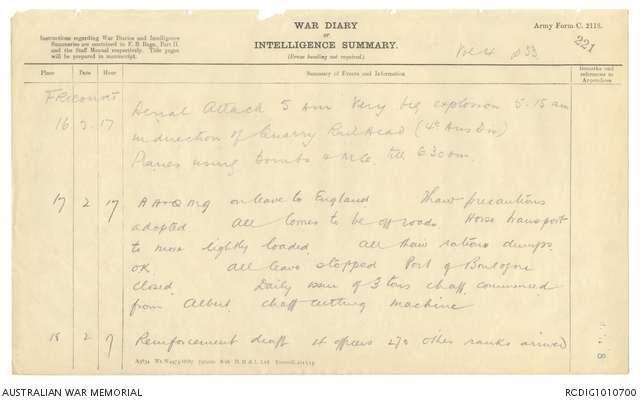 WAR DIARY
or
INTELLIGENCE SUMMARY.
(Erase heading not required.)
Army Form C. 2118.
221
Instructions regarding War Diaries and Intelligence
Summaries are contained in F. S. Regs., Part II.
and the Staff Manual respectively. Title pages
will be prepared in manuscript.
Place Date Hour Summary of Events and Information Remarks and references to Appendices
Fricourt
16 2 17 Aerial Attack 5 am Very big explosion 5.15 am
in direction of Quarry Railhead (4th Aus Div)
Planes using bombs & MG till 6 30 am.
17 2 17 AA & QMG on leave to England Thaw precautions
adopted all lorries to be off roads Horse transport
to more lightly loaded all thaw rations dumps
OK all leave stopped Port of Boulogne
closed Daily issue of 3 tons chaff commenced
from Albert chaff cutting machine
18 2 7 Reinforcement draft 4 officers 270 other ranks arrived
AUSTRALIAN WAR MEMORIAL
RCDIG1010700